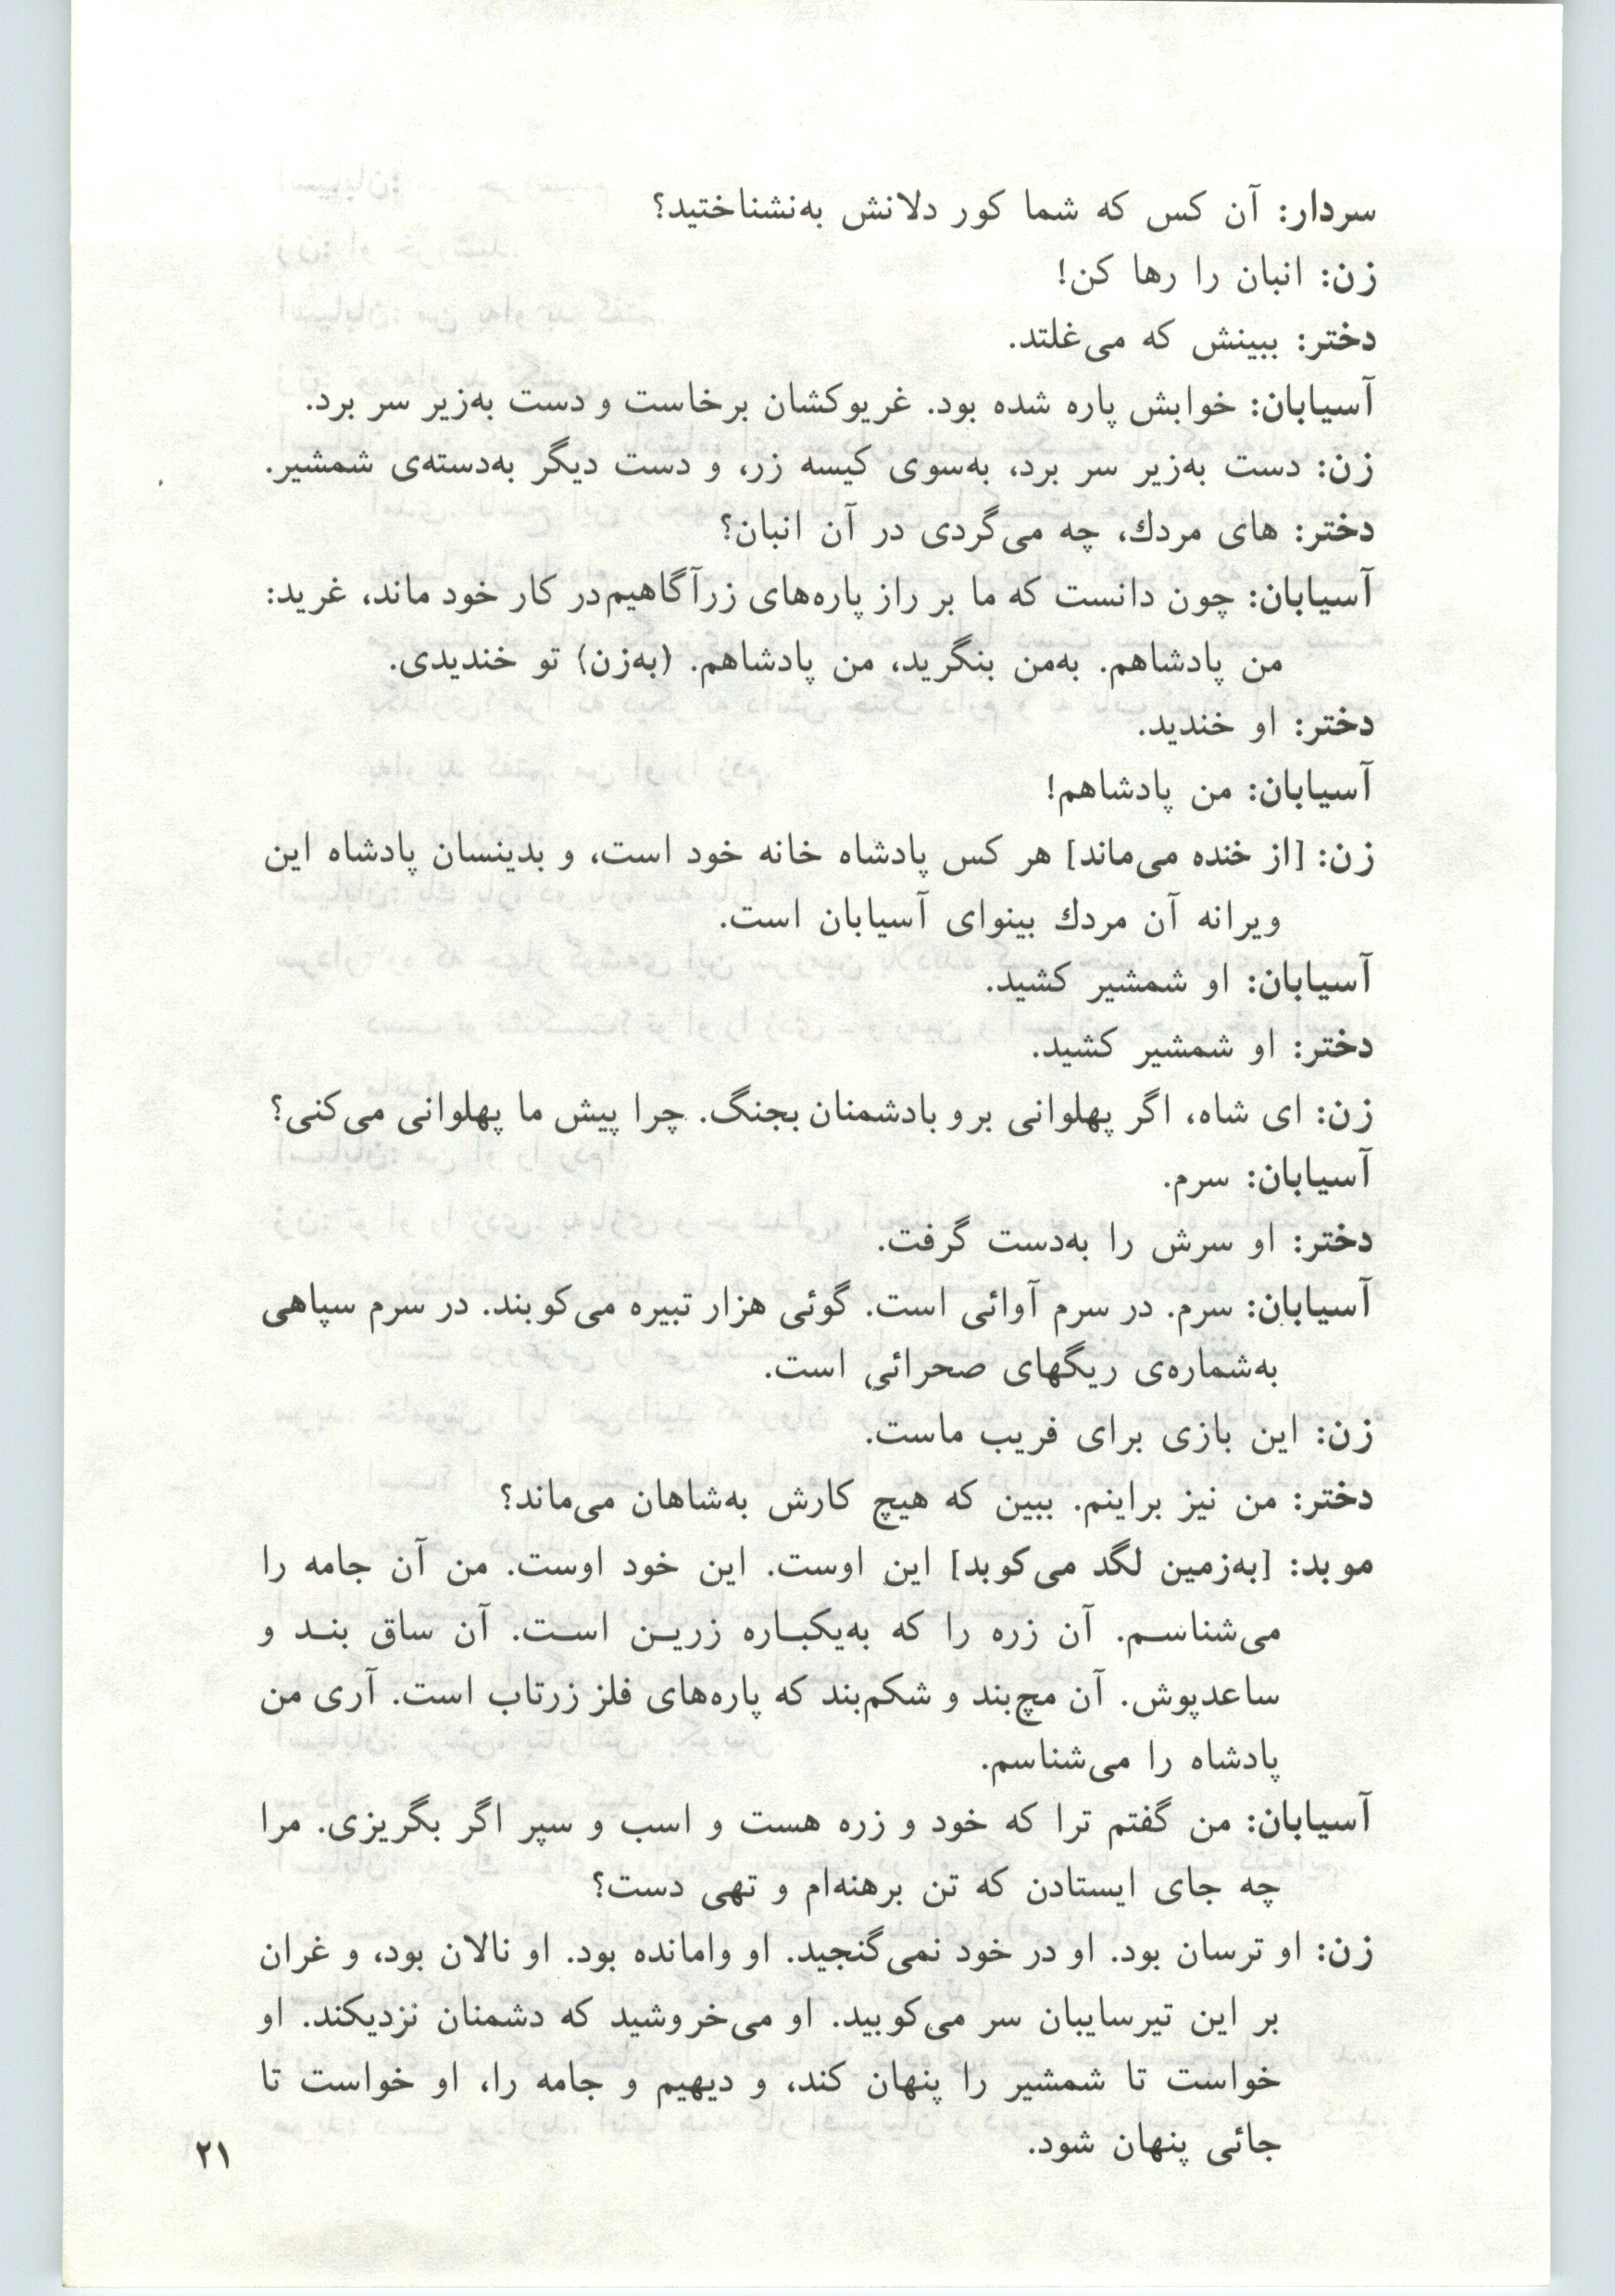 سردار: آن کس که شما کور دلانش به‌نشناختید؟
زن: انبان را رها کن!
دختر: ببینش که می‌غلتد.
آسیابان: خوابش پاره شده بود. غریوکشان برخاست و دست به‌زیر سر برد.
زن: دست به‌زیر سر برد، به‌سوی کیسه زر، و دست دیگر به‌دسته‌ی شمشیر.
دختر: های مردك، چه می‌گردی در آن انبان؟
آسیابان: چون دانست که ما بر راز پاره‌های زرآگاهیم در کار خود ماند، غرید:
من پادشاهم. به‌من بنگرید، من پادشاهم. (به‌زن) تو خندیدی.
دختر: او خندید.
آسیابان: من پادشاهم!
زن: [از خنده می‌ماند] هر کس پادشاه خانه خود است، و بدینسان پادشاه این
ویرانه آن مردك بینوای آسیابان است.
آسیابان: او شمشیر کشید.
دختر: او شمشیر کشید.
زن: ای شاه، اگر پهلوانی برو بادشمنان بجنگ. چرا پیش ما پهلوانی می‌کنی؟
آسیابان: سرم.
دختر: او سرش را به‌دست گرفت.
آسیابان: سرم. در سرم آوائی است. گوئی هزار تبیره می‌کوبند. در سرم سپاهی
به‌شماره‌ی ریگهای صحرائی است.
زن: این بازی برای فریب ماست.
دختر: من نیز براینم. ببین که هیچ کارش به‌شاهان می‌ماند؟
موبد: [به‌زمین لگد می‌کوبد] این اوست. این خود اوست. من آن جامه را
می‌شناسم. آن زره را که به‌یکباره زرین است. آن ساق بند و
ساعدپوش. آن مچ‌بند و شکم‌بند که پاره‌های فلز زرتاب است. آری من
پادشاه را می‌شناسم.
آسیابان: من گفتم ترا که خود و زره هست و اسب و سپر اگر بگریزی. مرا
چه جای ایستادن که تن برهنه‌ام و تهی دست؟
زن: او ترسان بود. او در خود نمی‌گنجید. او وامانده بود. او نالان بود، و غران
بر این تیرسایبان سر می‌کوبید. او می‌خروشید که دشمنان نزدیکند. او
خواست تا شمشیر را پنهان کند، و دیهیم و جامه را، او خواست تا
جائی پنهان شود.
۲۱